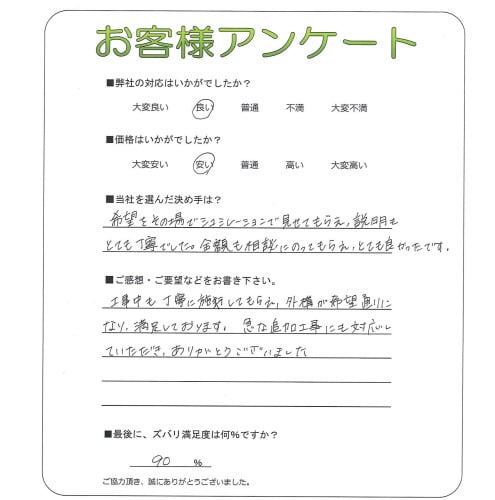 お客様アンケート
■弊社の対応はいかがでしたか？
大変良い 良い 普通 不満 大変不満
■価格はいかがでしたか？
大変安い 安い 普通 高い 大変高い
■当社を選んだ決め手は？
希望をその場でシュミレーションで見せてもらえ、説明も
とても丁寧でした。金額も相談にのってもらえ、とても良かったです。
■ご感想・ご要望などをお書き下さい。
工事中も丁寧に施工してもらえ、外構が希望通りに
なり、満足しております。急な追加工事にも対応し
ていただき、ありがとうございました
■最後に、ズバリ満足度は何％ですか？
90 ％
ご協力頂き、誠にありがとうございました。